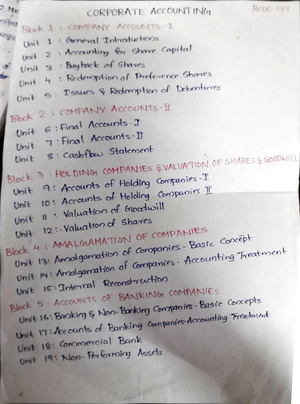 CORPORATE ACCOUNTING
Block 1 : COMPANY ACCOUNTS - I
Unit 1 : General Introductions
Unit 2 : Accounting for Share Capital
Unit 3 : Buyback of Shares
Unit 4 : Redemption of Preference Shares
Unit 5 : Issues & Redemption of Debentures
Block 2 : COMPANY ACCOUNTS - II
Unit 6 : Final Accounts - I
Unit 7 : Final Accounts - II
Unit 8 : Cashflow Statement
Block 3 : HOLDING COMPANIES & VALUATION OF SHARES & GOODWILL
Unit 9 : Accounts of Holding Companies - I
Unit 10 : Accounts of Holding Companies - II
Unit 11 : Valuation of Goodwill
Unit 12 : Valuation of Shares
Block 4 : AMALGAMATION OF COMPANIES
Unit 13 : Amalgamation of Companies - Basic Concept
Unit 14 : Amalgamation of Companies - Accounting Treatment
Unit 15 : Internal Reconstruction
Block 5 - ACCOUNTS OF BANKING COMPANIES
Unit 16 : Banking & Non-Banking Companies - Basic Concepts
Unit 17 : Accounts of Banking Companies - Accounting Treatment
Unit 18 : Commercial Bank
Unit 19 : Non-Performing Assets